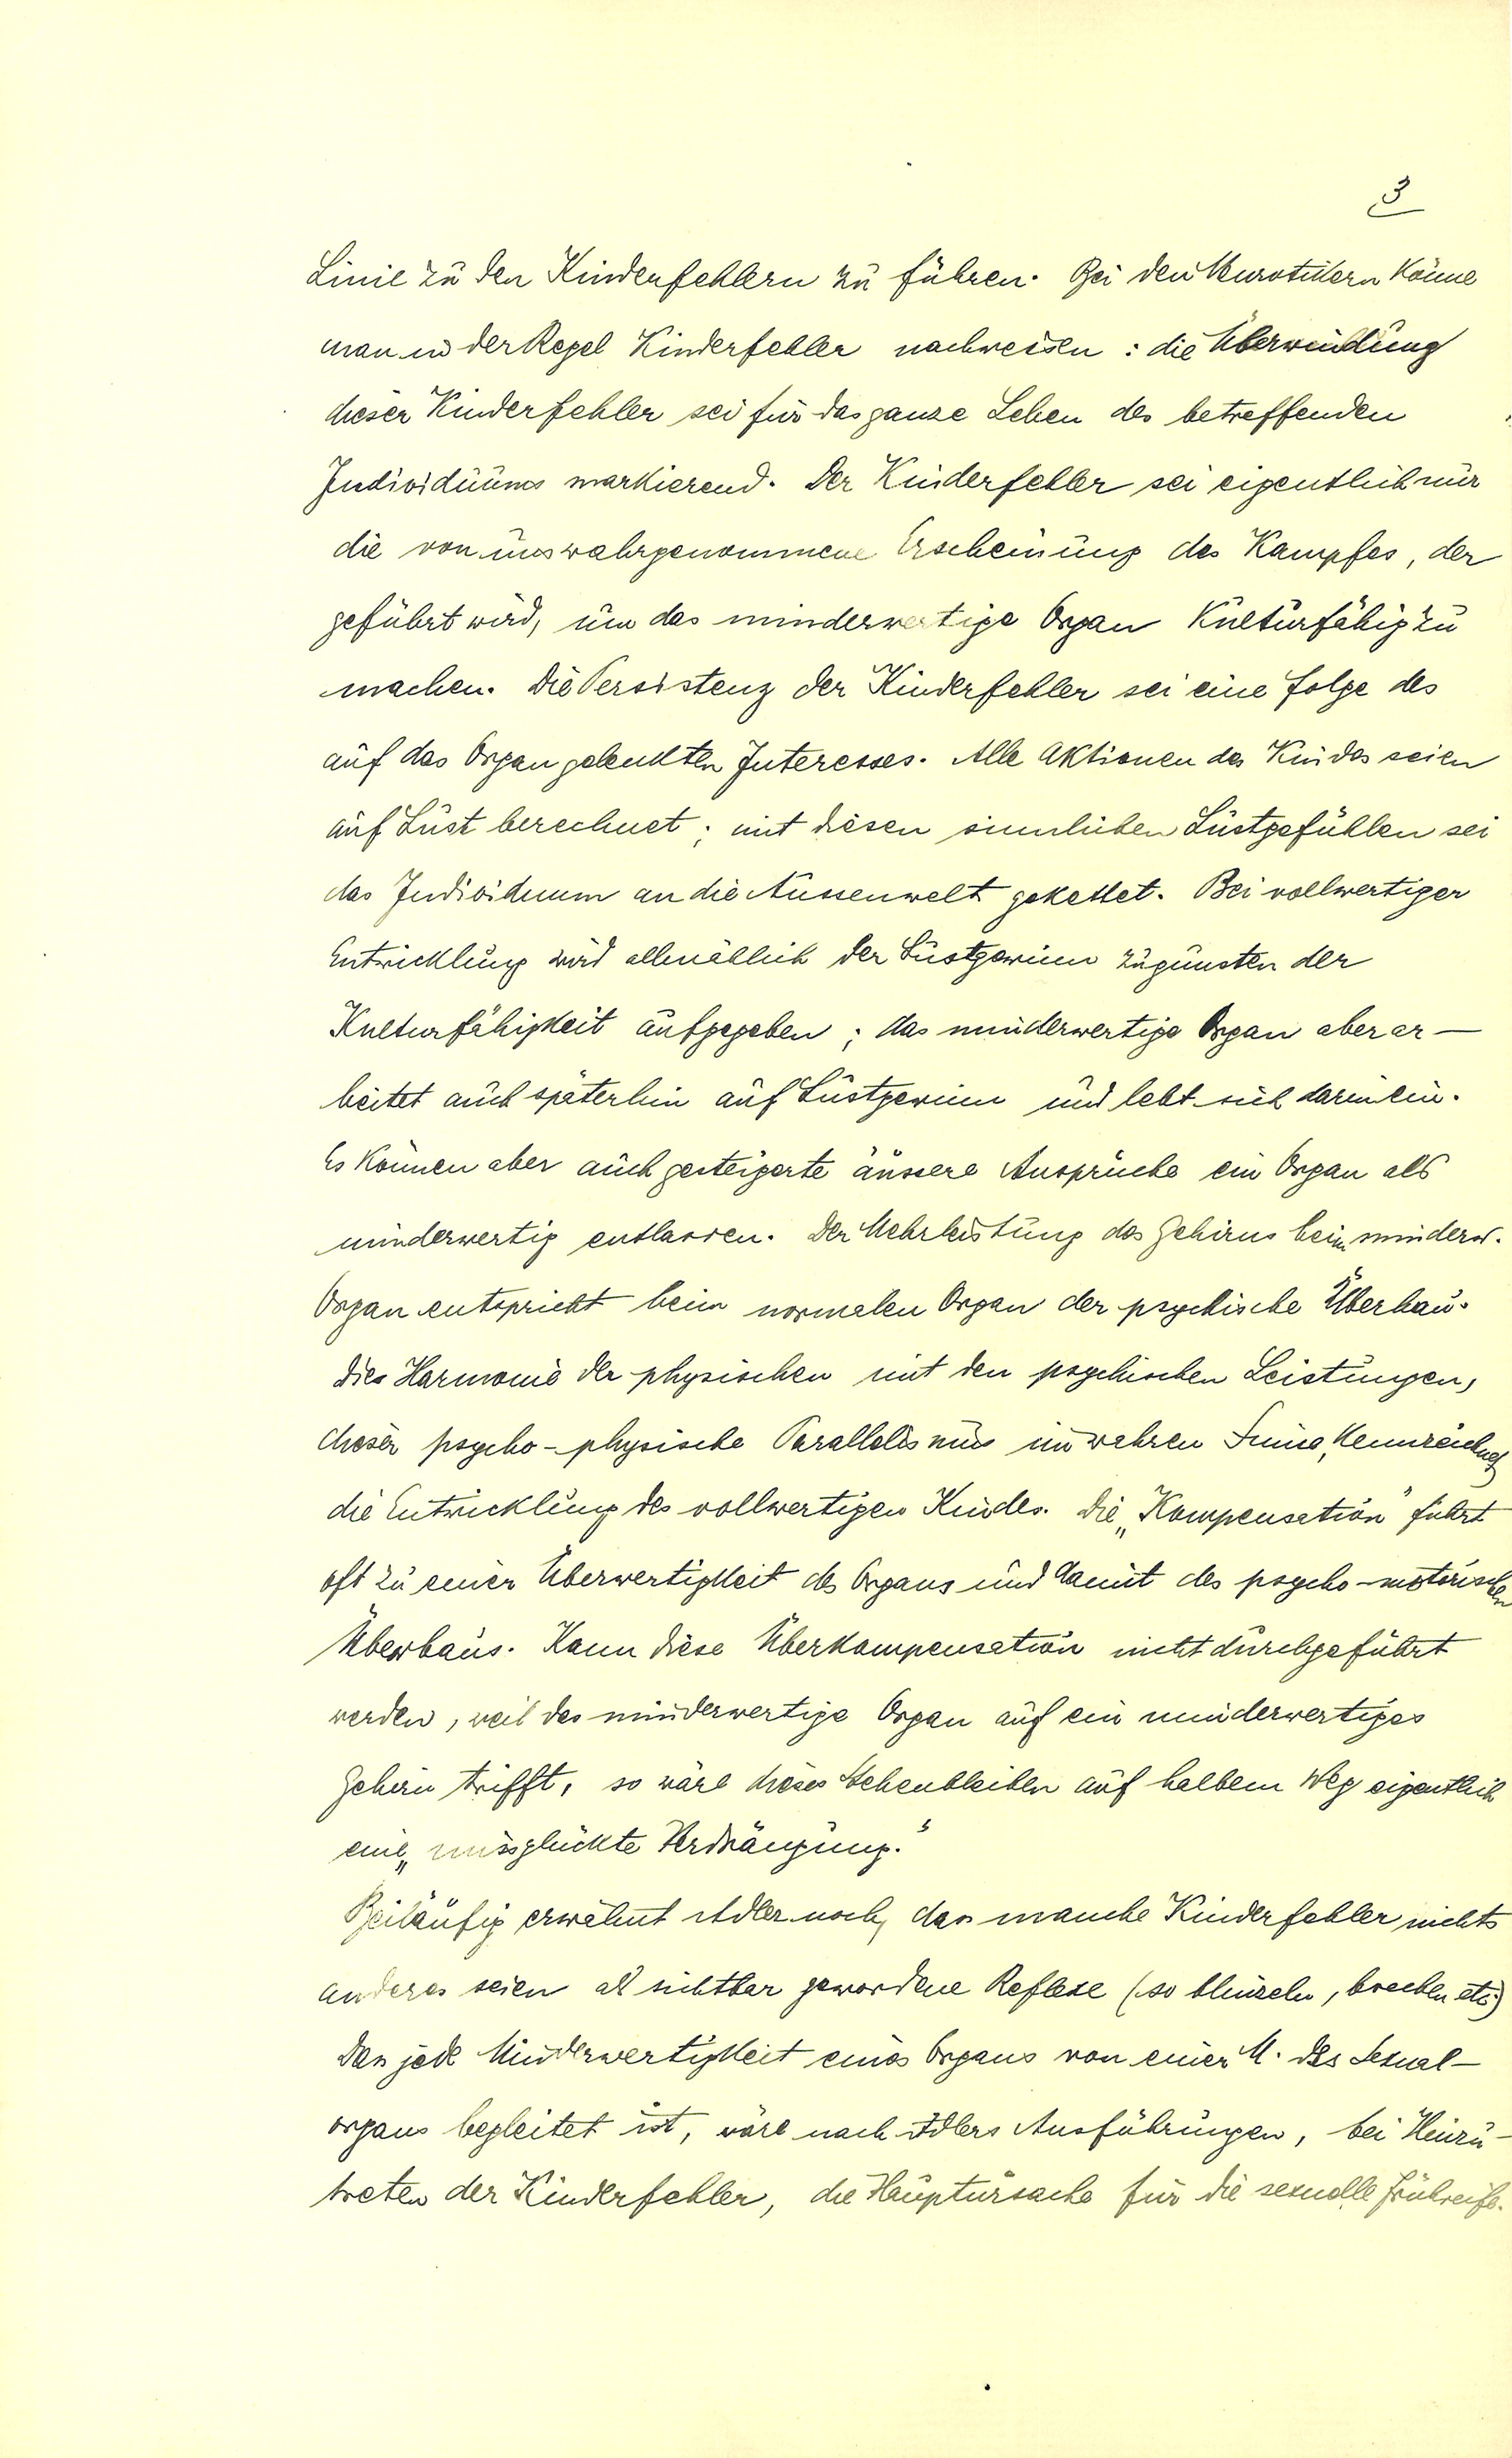 3
Linie zu den Kinderfehlern zu führen. Bei den Neurotikern könne
man in der Regel Kinderfehler nachweisen: die Überwindung
dieser Kinderfehler sei für das ganze Leben des betreffenden
Individuums markierend. Der Kinderfehler sei eigentlich nur
die von uns wahrgenommene Erscheinung des Kampfes, der
geführt wird, um das minderwertige Organ kulturfähig zu
machen. Die Persistenz der Kinderfehler sei eine Folge des
auf das Organ gelenkten Interesses. Alle Aktionen des Kindes seien
auf Lust berechnet; mit diesen sinnlichen Lustgefühlen sei
das Individuum an die Aussenwelt gekettet. Bei vollwertiger
Entwicklung wird allmählich der Lustgewinn zugunsten der
Kulturfähigkeit aufgegeben; das minderwertige Organ aber ar-
beitet auch späterhin auf Lustgewinn und lebt sich darin ein.
Es können aber auch gesteigerte äussere Ansprüche ein Organ als
minderwertig entlarven. Der Mehrleistung des Gehirns beim minderw.
Organ entspricht beim normalen Organ der psychische Überbau.
Dies Harmonie der physischen mit den psychischen Leistungen,
dieser psycho-physische Parallelismus im wahren Sinne, kennzeichnet
die Entwicklung des vollwertigen Kindes. Die „Kompensation“ führt
oft zu einer Überwertigkeit des Organs und damit des psycho-motorischen
Überbaus. Kann diese Überkompensation nicht durchgeführt
werden, weil das minderwertige Organ auf ein minderwertiges
Gehirn trifft, so wäre dieses Stehenbleiben auf halbem Weg eigentlich
eine „missglückte Verdrängung.“
Beiläufig erwähnt Adler noch, dass manche Kinderfehler nichts
anderes seien als sichtbar gewordene Reflexe (so blinzeln, brechen etc.)
Dass jede Minderwertigkeit eines Organs von einer M. des Sexual-
organs begleitet ist, wäre nach Adlers Ausführungen, bei Hinzu-
treten der Kinderfehler, die Hauptursache für die sexuelle Frühreife.